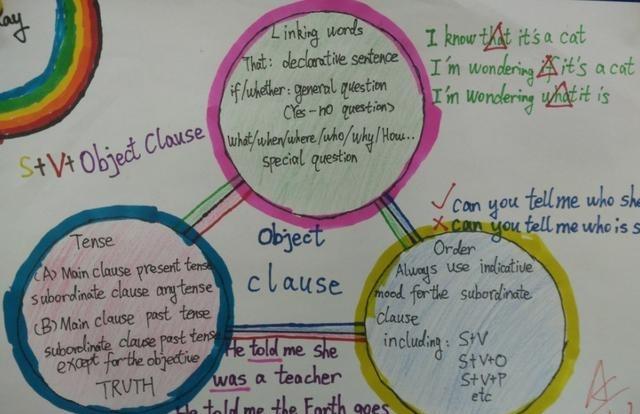 Linking words
That: declarative sentence
if/whether: general question
(Yes-no question)
what/when/where/who/why/How..
special question
I know that it's a cat
I'm wondering if it's a cat
I'm wondering what it is
S+V+Object Clause
can you tell me who she
can you tell me who is s
Object
clause
Tense
(A) Main clause present tense
subordinate clause any tense
(B) Main clause past tense
subordinate clause past tense
except for the objective
TRUTH
Order
Always use indicative
mood for the subordinate
clause
including: S+V
S+V+O
S+V+P
etc
He told me she
was a teacher
He told me the Earth goes